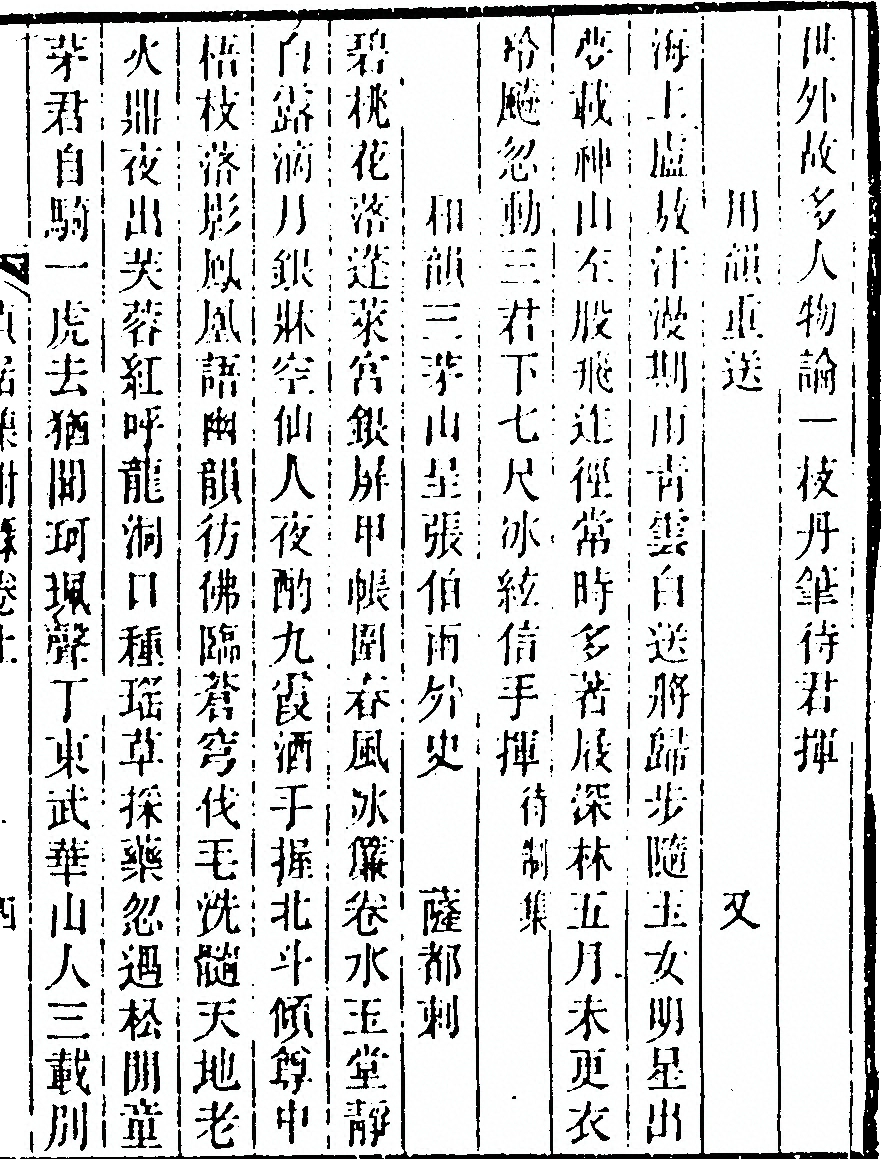 世外故多人物論一枝丹筆待君揮
用韻重送 又
海上盧敖汗漫期山青雲白送將歸步隨玉女明星出
夢載神山左股飛進徑常時多著屐深林五月未更衣
泠飈忽動三君下七尺冰絃信手揮 待制集
和韻三茅山呈張伯雨外史 薩都剌
碧桃花落蓬萊宮銀屏甲帳圍春風冰簾卷水玉堂靜
白露滴月銀牀空仙人夜酌九霞酒手握北斗傾尊中
梧枝落影鳳凰語幽韻彷彿臨蒼穹伐毛洗髓天地老
火鼎夜出芙蓉紅呼龍洞口種瑶草採藥忽遇松間童
茅君自騎一虎去猶聞珂珮聲丁東武華山人三載別
貞居集附錄卷上 四